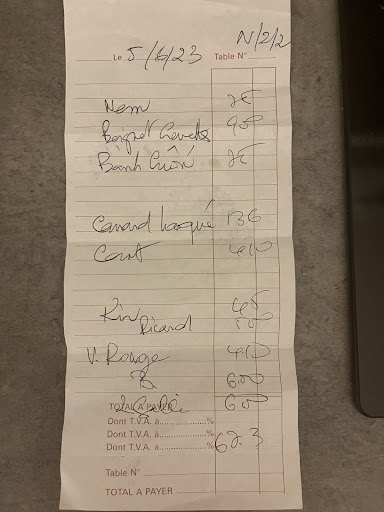 N/2/2
Le 5/6/23 Table N°
Nem 8€
Beignet Crevette 950
Bánh Cuốn 8€
Canard laqué 13€
Cant 410
Kir 45
Ricard 500
V. Rouge 410
6.00
TOTAL A PAYER 600
Dont T.V.A. à %
Dont T.V.A. à %
Dont T.V.A. à %
62.3
Table N°
TOTAL A PAYER